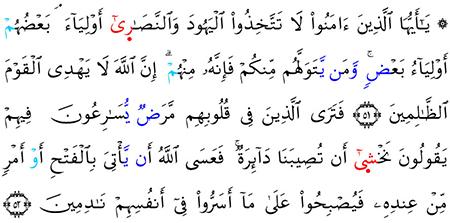 ۞ يَـٰٓأَيُّهَا الَّذِينَ ءَامَنُوا۟ لَا تَتَّخِذُوا۟ الْيَهُودَ وَالنَّصَـٰرِىٰٓ أَوْلِيَآءَ ۘ بَعْضُهُمْ
أَوْلِيَآءُ بَعْضٍ ۚ وَمَن يَّتَوَلَّهُم مِّنكُمْ فَإِنَّهُۥ مِنْهُمْ ۗ إِنَّ اللَّهَ لَا يَهْدِى الْقَوْمَ
الظَّـٰلِمِينَ ﴿٥١﴾ فَتَرَى الَّذِينَ فِى قُلُوبِهِم مَّرَضٌ يُّسَـٰرِعُونَ فِيهِمْ
يَقُولُونَ نَخْشِىٰٓ أَن تُصِيبَنَا دَآئِرَةٌ ۚ فَعَسَى اللَّهُ أَن يَّأْتِىَ بِالْفَتْحِ أَوْ أَمْرٍ
مِّنْ عِندِهِۦ فَيُصْبِحُوا۟ عَلَىٰ مَآ أَسَرُّوا۟ فِىٓ أَنفُسِهِمْ نَـٰدِمِينَ ﴿٥٢﴾